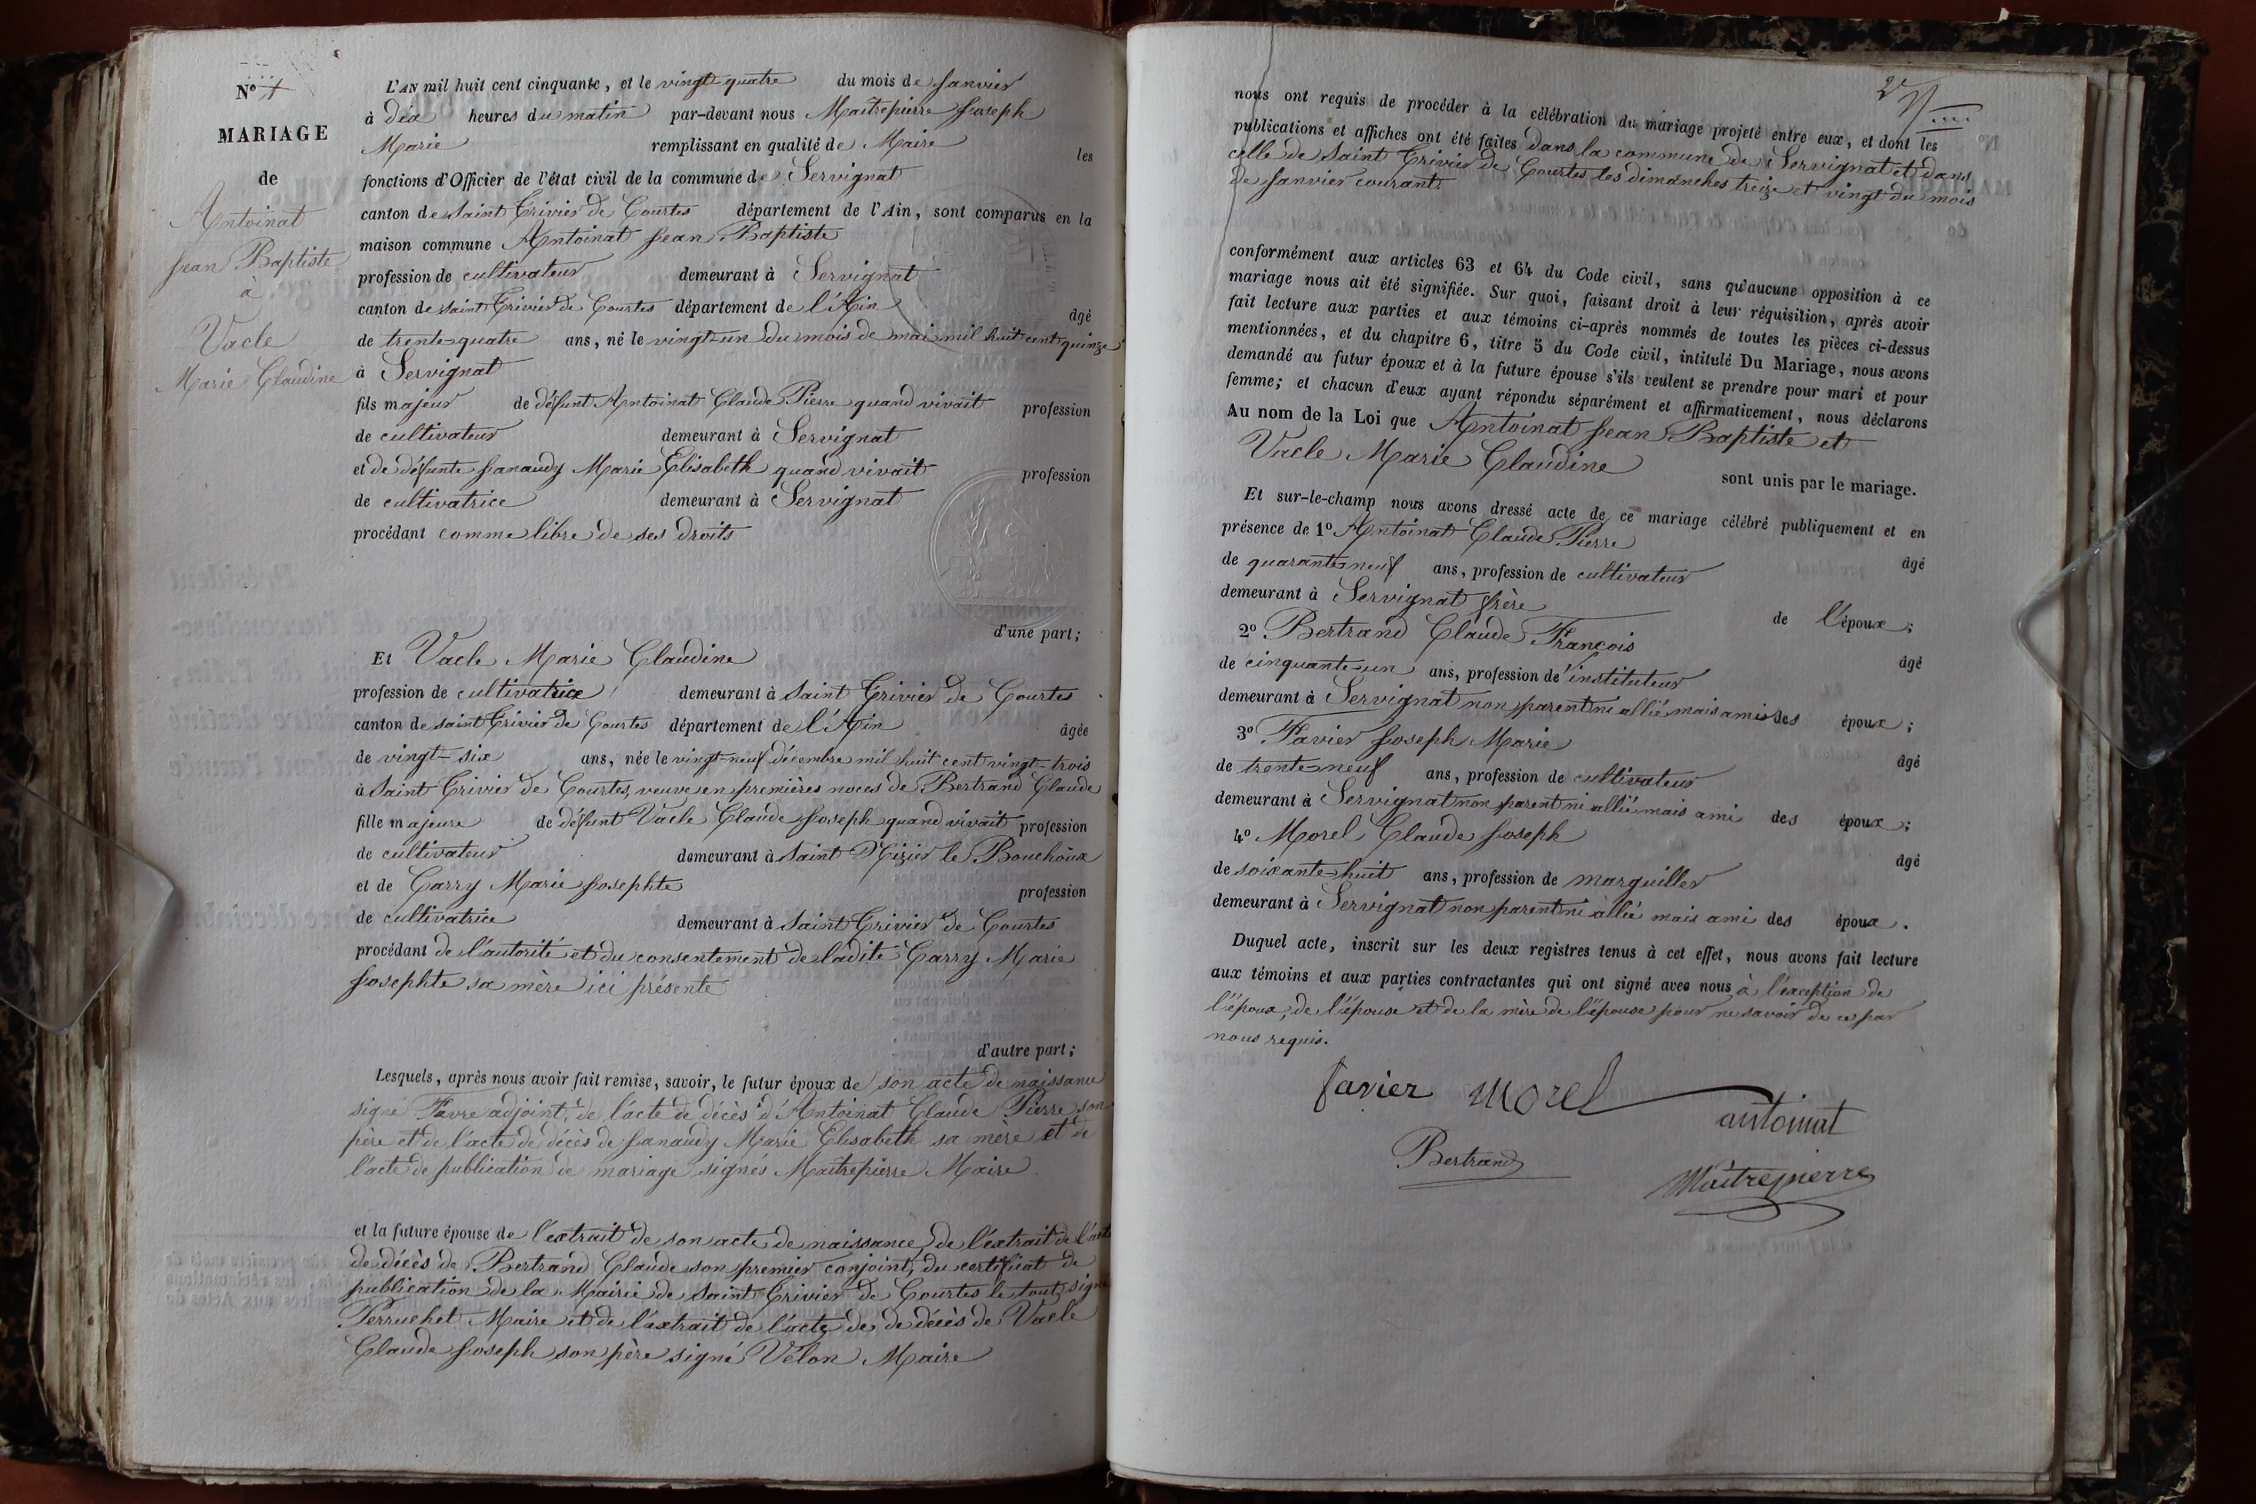 N° 1
MARIAGE
de
Antoinat
Jean Baptiste
à
Vacle
Marie Claudine
L'AN mil huit cent cinquante, et le vingt-quatre du mois de Janvier
à dix heures du matin par-devant nous Maîtrepierre Joseph
Marie remplissant en qualité de Maire les
fonctions d'Officier de l'état civil de la commune de Servignat
canton de Saint Trivier de Courtes département de l'Ain, sont comparus en la
maison commune Antoinat Jean Baptiste
profession de cultivateur demeurant à Servignat
canton de saint Trivier de Courtes département de l'Ain âgé
de trente-quatre ans, né le vingt-un du mois de mai mil huit cent quinze
à Servignat
fils majeur de défunt Antoinat Claude Pierre quand vivait profession
de cultivateur demeurant à Servignat
et de défunte Janaudy Marie Elisabeth quand vivait profession
de cultivatrice demeurant à Servignat
procédant comme libre de ses droits
d'une part;
Et Vacle Marie Claudine
profession de cultivatrice demeurant à Saint Trivier de Courtes
canton de saint Trivier de Courtes département de l'Ain âgée
de vingt-six ans, née le vingt-neuf décembre mil huit cent vingt-trois
à Saint Trivier de Courtes, veuve en premières noces de Bertrand Claude
fille majeure de défunt Vacle Claude Joseph quand vivait profession
de cultivateur demeurant à Saint Nizier le Bouchoux
et de Carry Marie Josephte profession
de cultivatrice demeurant à Saint Trivier de Courtes
procédant de l'autorité et du consentement de ladite Carry Marie
Josephte sa mère ici présente
d'autre part;
Lesquels, après nous avoir fait remise, savoir, le futur époux de son acte de naissance
signé Favre adjoint, de l'acte de décès d'Antoinat Claude Pierre son
père et de l'acte de décès de Janaudy Marie Elisabeth sa mère et de
l'acte de publication de mariage signés Maîtrepierre Maire
et la future épouse de l'extrait de son acte de naissance, de l'extrait de l'acte
de décès de Bertrand Claude son premier conjoint, du certificat de
publication de la Mairie de Saint Trivier de Courtes le tout signé
Perruchet Maire et de l'extrait de l'acte de de décès de Vacle
Claude Joseph son père signé Vélon Maire
2
nous ont requis de procéder à la célébration du mariage projeté entre eux, et dont les
publications et affiches ont été faites dans la commune de Servignat et dans
celle de Saint Trivier de Courtes les dimanches treize et vingt du mois
de Janvier courant
conformément aux articles 63 et 64 du Code civil, sans qu'aucune opposition à ce
mariage nous ait été signifiée. Sur quoi, faisant droit à leur réquisition, après avoir
fait lecture aux parties et aux témoins ci-après nommés de toutes les pièces ci-dessus
mentionnées, et du chapitre 6, titre 5 du Code civil, intitulé Du Mariage, nous avons
demandé au futur époux et à la future épouse s'ils veulent se prendre pour mari et pour
femme; et chacun d'eux ayant répondu séparément et affirmativement, nous déclarons
Au nom de la Loi que Antoinat Jean Baptiste et
Vacle Marie Claudine
sont unis par le mariage.
Et sur-le-champ nous avons dressé acte de ce mariage célébré publiquement et en
présence de 1° Antoinat Claude Pierre âgé
de quarante-neuf ans, profession de cultivateur
demeurant à Servignat frère de l'époux;
2° Bertrand Claude François âgé
de cinquante-un ans, profession d'instituteur
demeurant à Servignat non parent ni allié mais ami des époux;
3° Favier Joseph Marie âgé
de trente-neuf ans, profession de cultivateur
demeurant à Servignat non parent ni allié mais ami des époux;
4° Morel Claude Joseph âgé
de soixante-huit ans, profession de marguiller
demeurant à Servignat non parent ni allié mais ami des époux.
Duquel acte, inscrit sur les deux registres tenus à cet effet, nous avons fait lecture
aux témoins et aux parties contractantes qui ont signé avec nous à l'exception de
l'époux, de l'épouse et de la mère de l'épouse pour ne savoir de ce par
nous requis.
favier morel
antoinat
Bertrand
Maîtrepierre